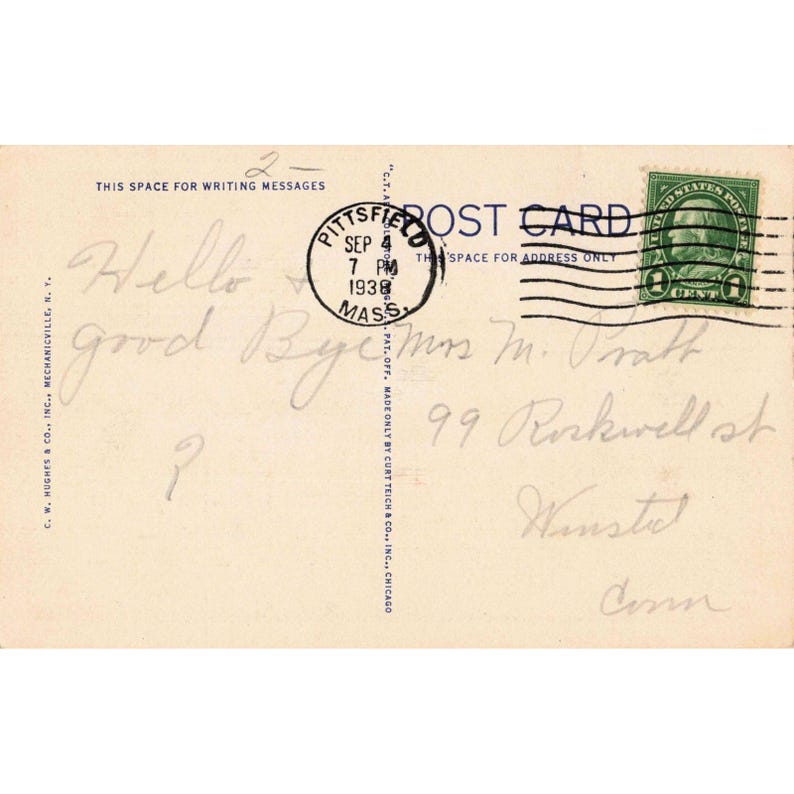 2 —
THIS SPACE FOR WRITING MESSAGES
Hello +
good Bye
?
C. W. HUGHES & CO., INC., MECHANICVILLE, N. Y.
PAT. OFF. MADE ONLY BY CURT TEICH & CO., INC., CHICAGO
PITTSFIELD
SEP 4
7 PM
1938
MASS.
POST CARD
THIS SPACE FOR ADDRESS ONLY
UNITED STATES POSTAGE
1 CENT 1
Mrs M. Pratt
99 Rockwell st
Winsted
Conn